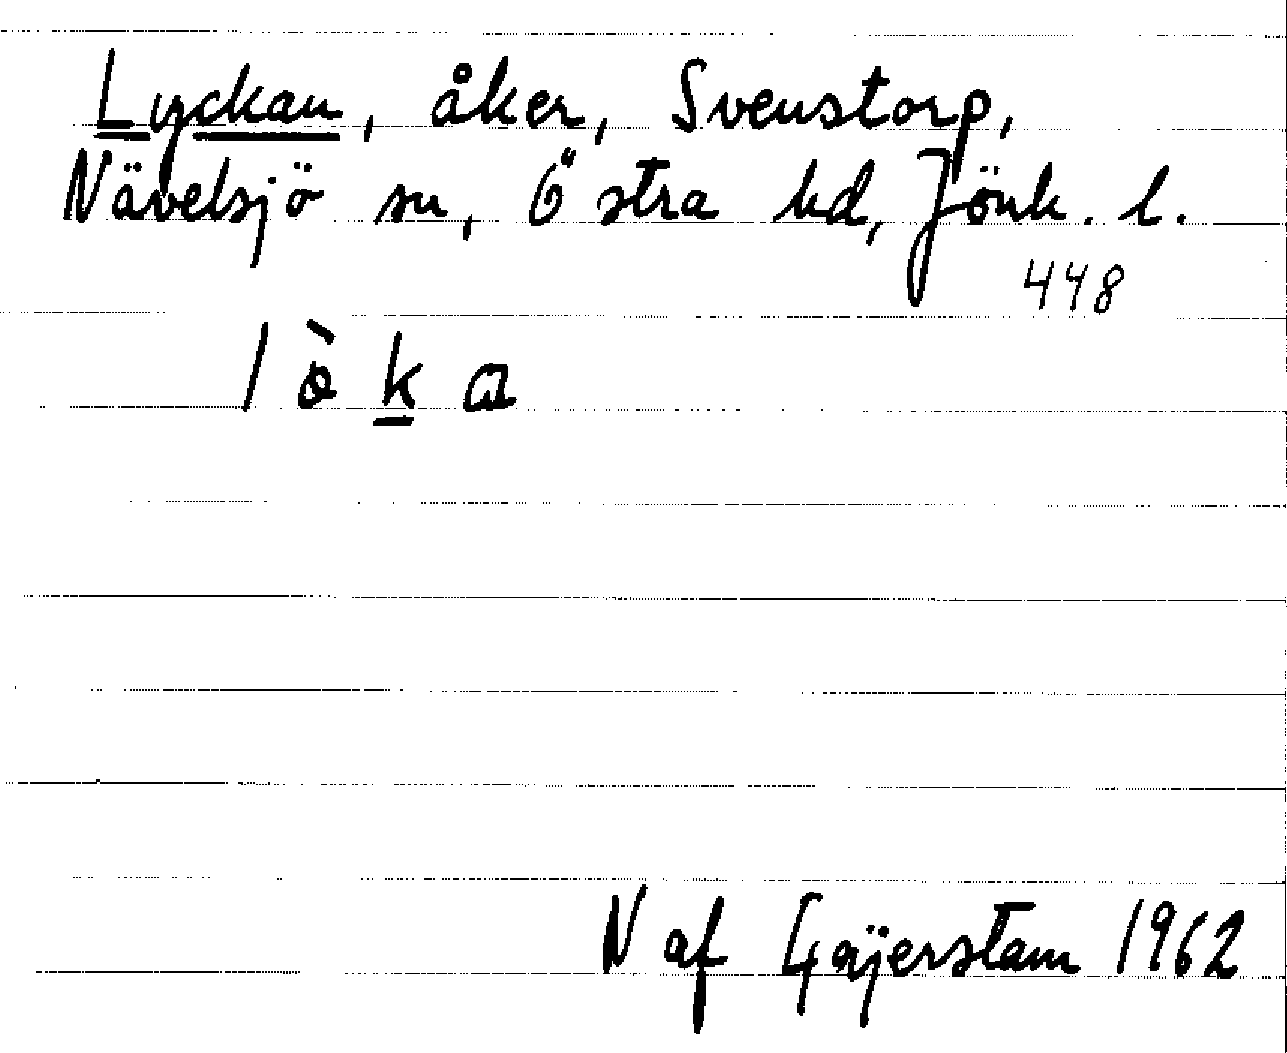 Lyckan, åker, Svenstorp,
Nävelsjö sn, Östra hd, Jönk. l.
448
lò̱ka
N af Gäjerstam 1962